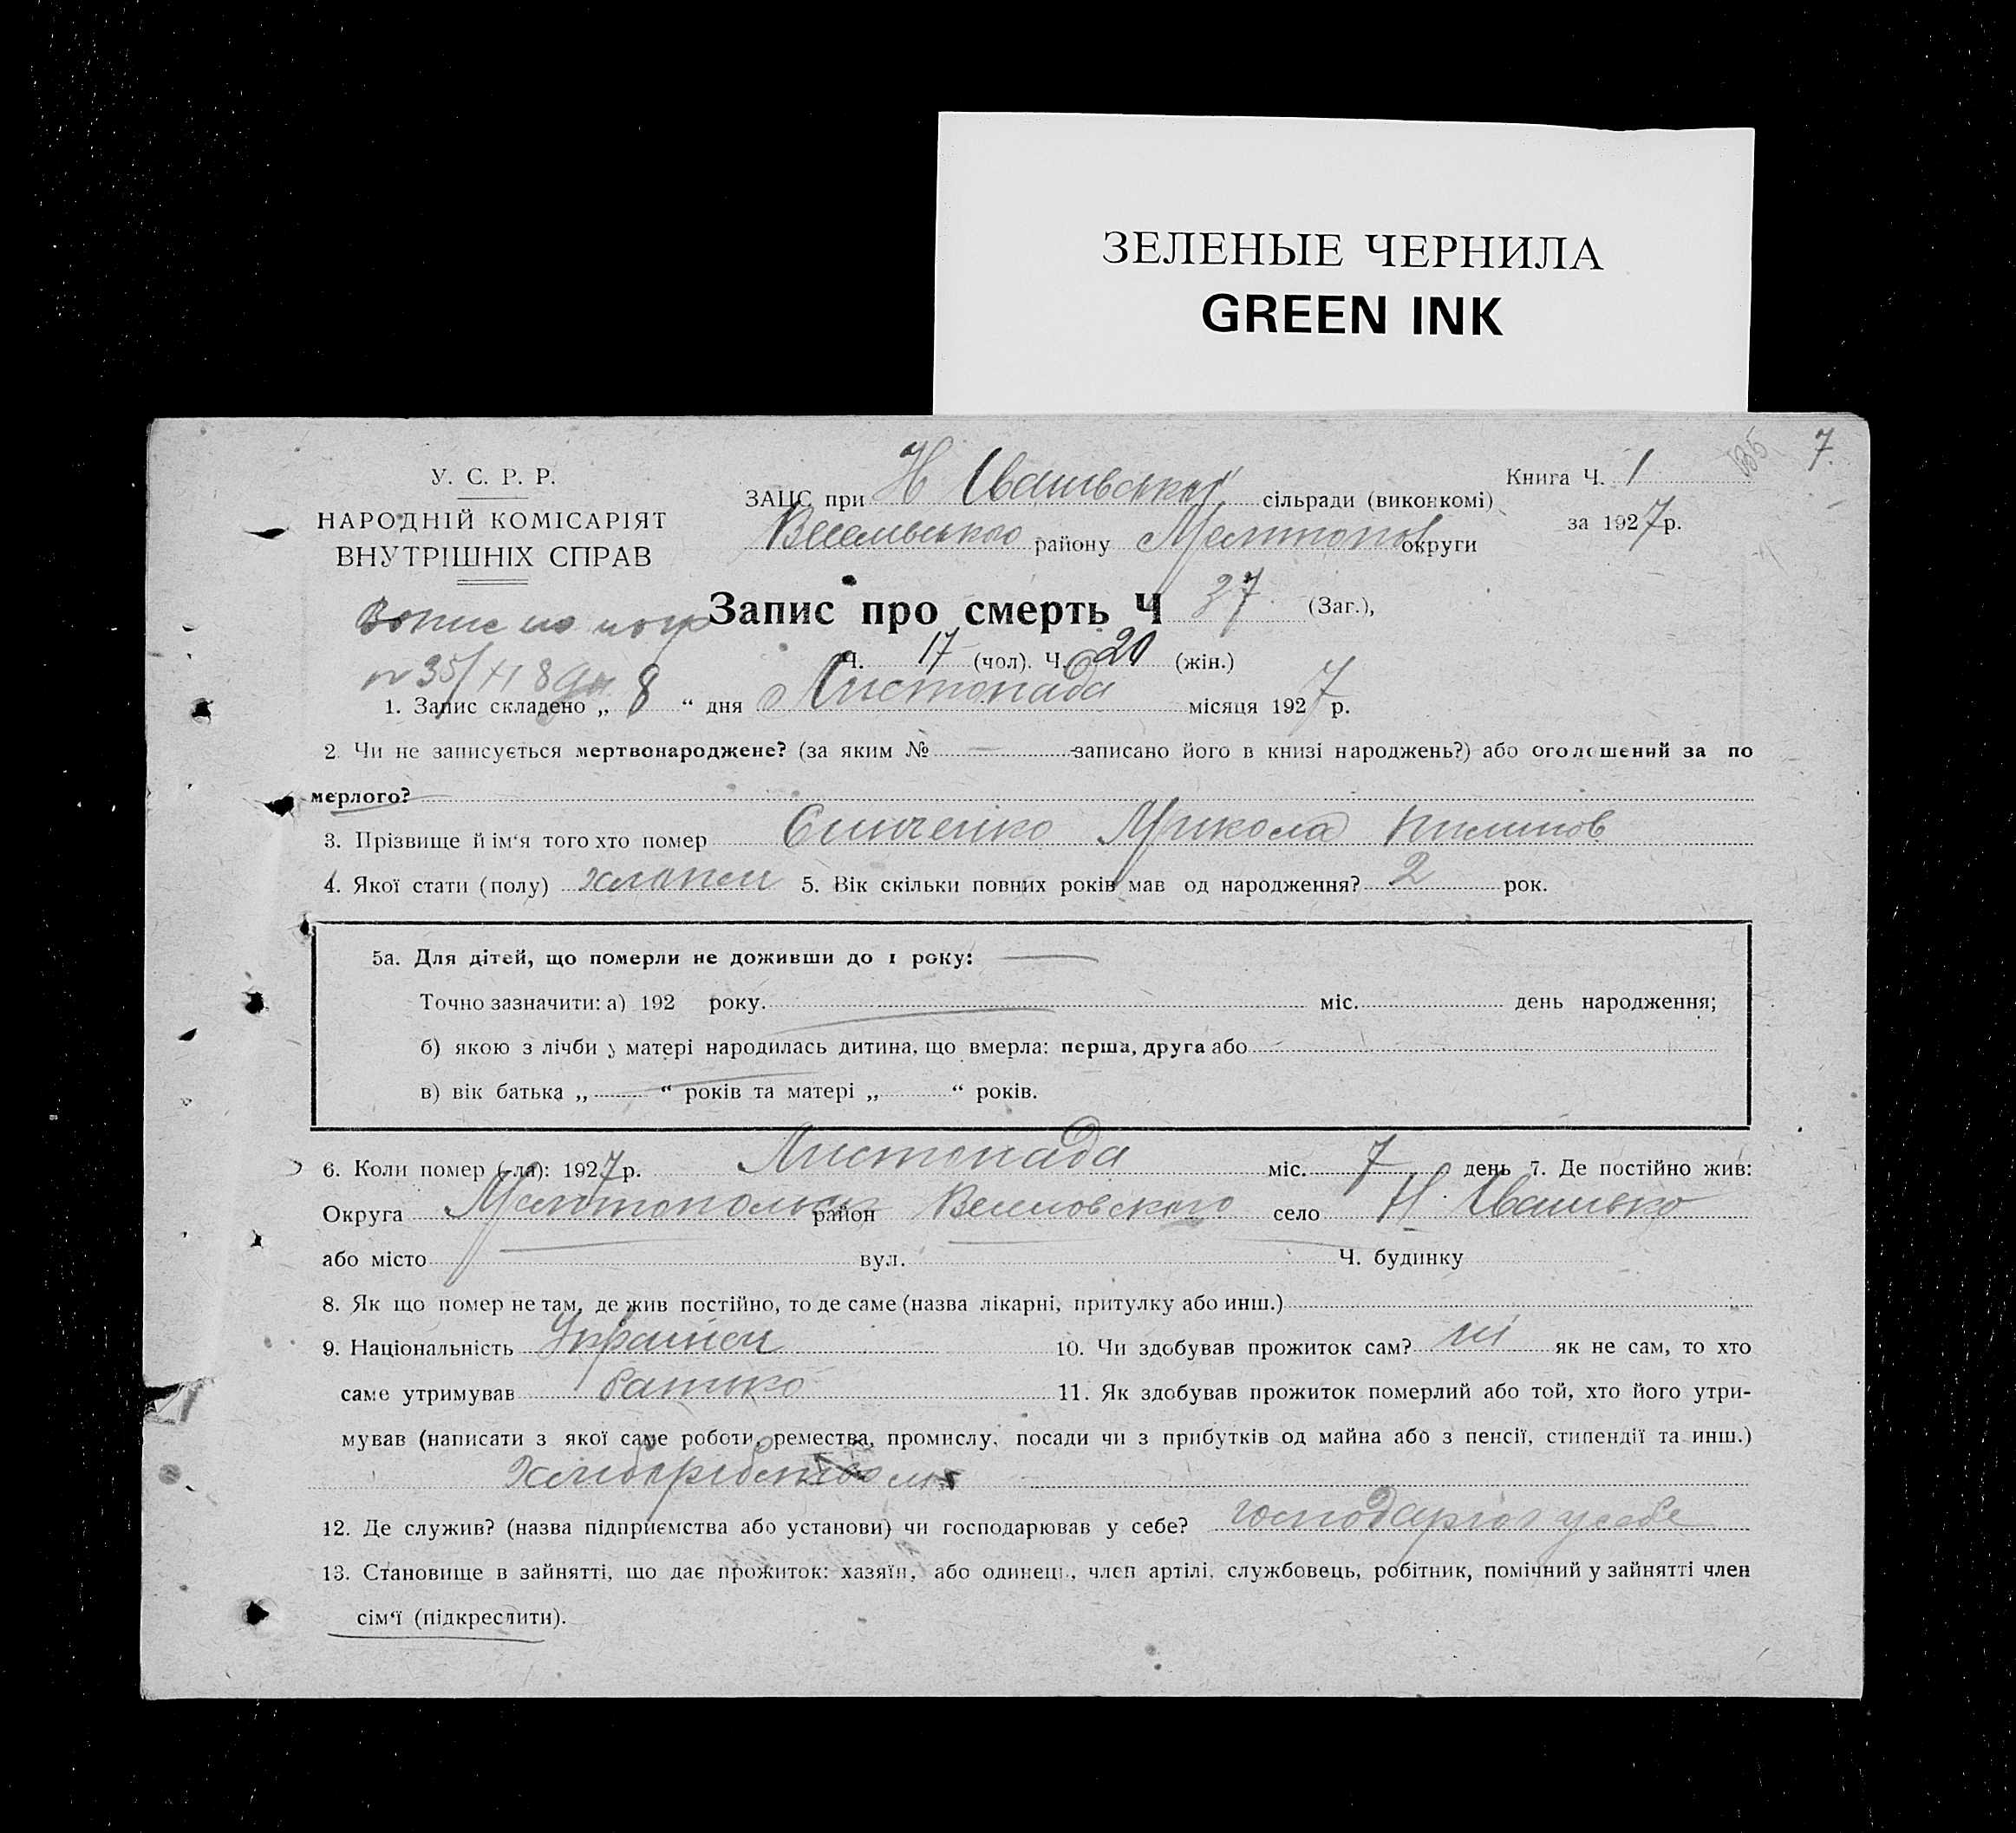 ЗЕЛЕНЫЕ ЧЕРНИЛА
GREEN INK
135 7.
У. С. Р. Р.
НАРОДНІЙ КОМІСАРІЯТ
ВНУТРІШНІХ СПРАВ
ЗАЦС при Н Івашвської сільради (виконкомі)
Веселвського району Мелітопол округи
Книга Ч. 1
за 1927 р.
Запис про смерть Ч 37 (Заг.),
№ 35/XI 8
Ч. 17 (чол). Ч. 20 (жін.)
1. Запис складено „ 8 “ дня Листопада місяця 1927 р.
2. Чи не записується мертвонароджене? (за яким № — записано його в книзі народжень?) або оголошений за по
мерлого?
3. Прізвище й ім‘я того хто помер Микола Пилипов
4. Якої стати (полу) хлопец 5. Вік скільки повних років мав од народження? 2 рок.
5а. Для дітей, що померли не доживши до 1 року: —
Точно зазначити: а) 192 року. міс. день народження;
б) якою з лічби у матері народилась дитина, що вмерла: перша, друга або
в) вік батька „ “ років та матері „ “ років.
6. Коли помер (-ла): 1927 р. Листопада міс. 7 день 7. Де постійно жив:
Округа Мелітопольск район Веселовского село Н. Івашько
або місто вул. Ч. будинку
8. Як що помер не там, де жив постійно, то де саме (назва лікарні, притулку або инш.)
9. Національність Українец 10. Чи здобував прожиток сам? ні як не сам, то хто
саме утримував батько 11. Як здобував прожиток померлий або той, хто його утри-
мував (написати з якої саме роботи, ремества, промислу, посади чи з прибутків од майна або з пенсії, стипендії та инш.)
хліборобством
12. Де служив? (назва підприємства або установи) чи господарював у себе? господарює у себе
13. Становище в зайнятті, що дає прожиток: хазяїн, або одинець, член артілі, службовець, робітник, помічний у зайнятті член
сім‘ї (підкреслити).